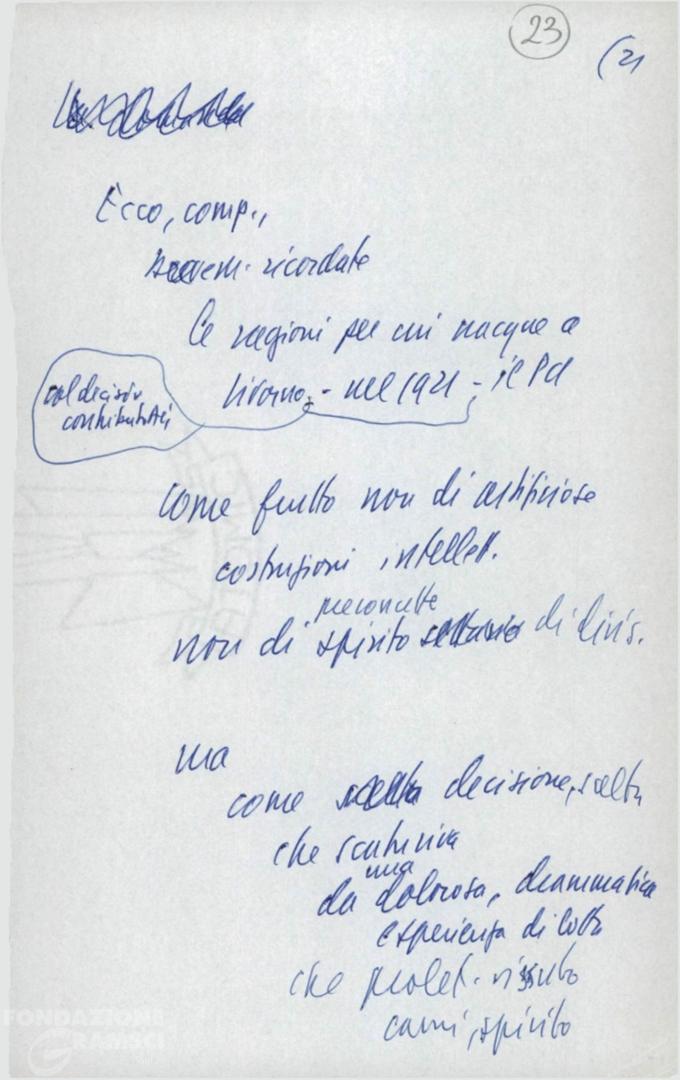 23
(2)
Ecco, comp.,
brevem. ricordate
le ragioni per cui nacque a
Livorno - nel 1921 - il Pci
col decisiv
contributo
come frutto non di artificiose
costruzioni intellett.
preconcetto
non di spirito settario di divis.
ma
come scelta decisione, scelta
che scaturiva
una
da dolorosa, drammatica
esperienza di lotta
che prolet. vissuto
carni, spirito
FONDAZIONE
GRAMSCI